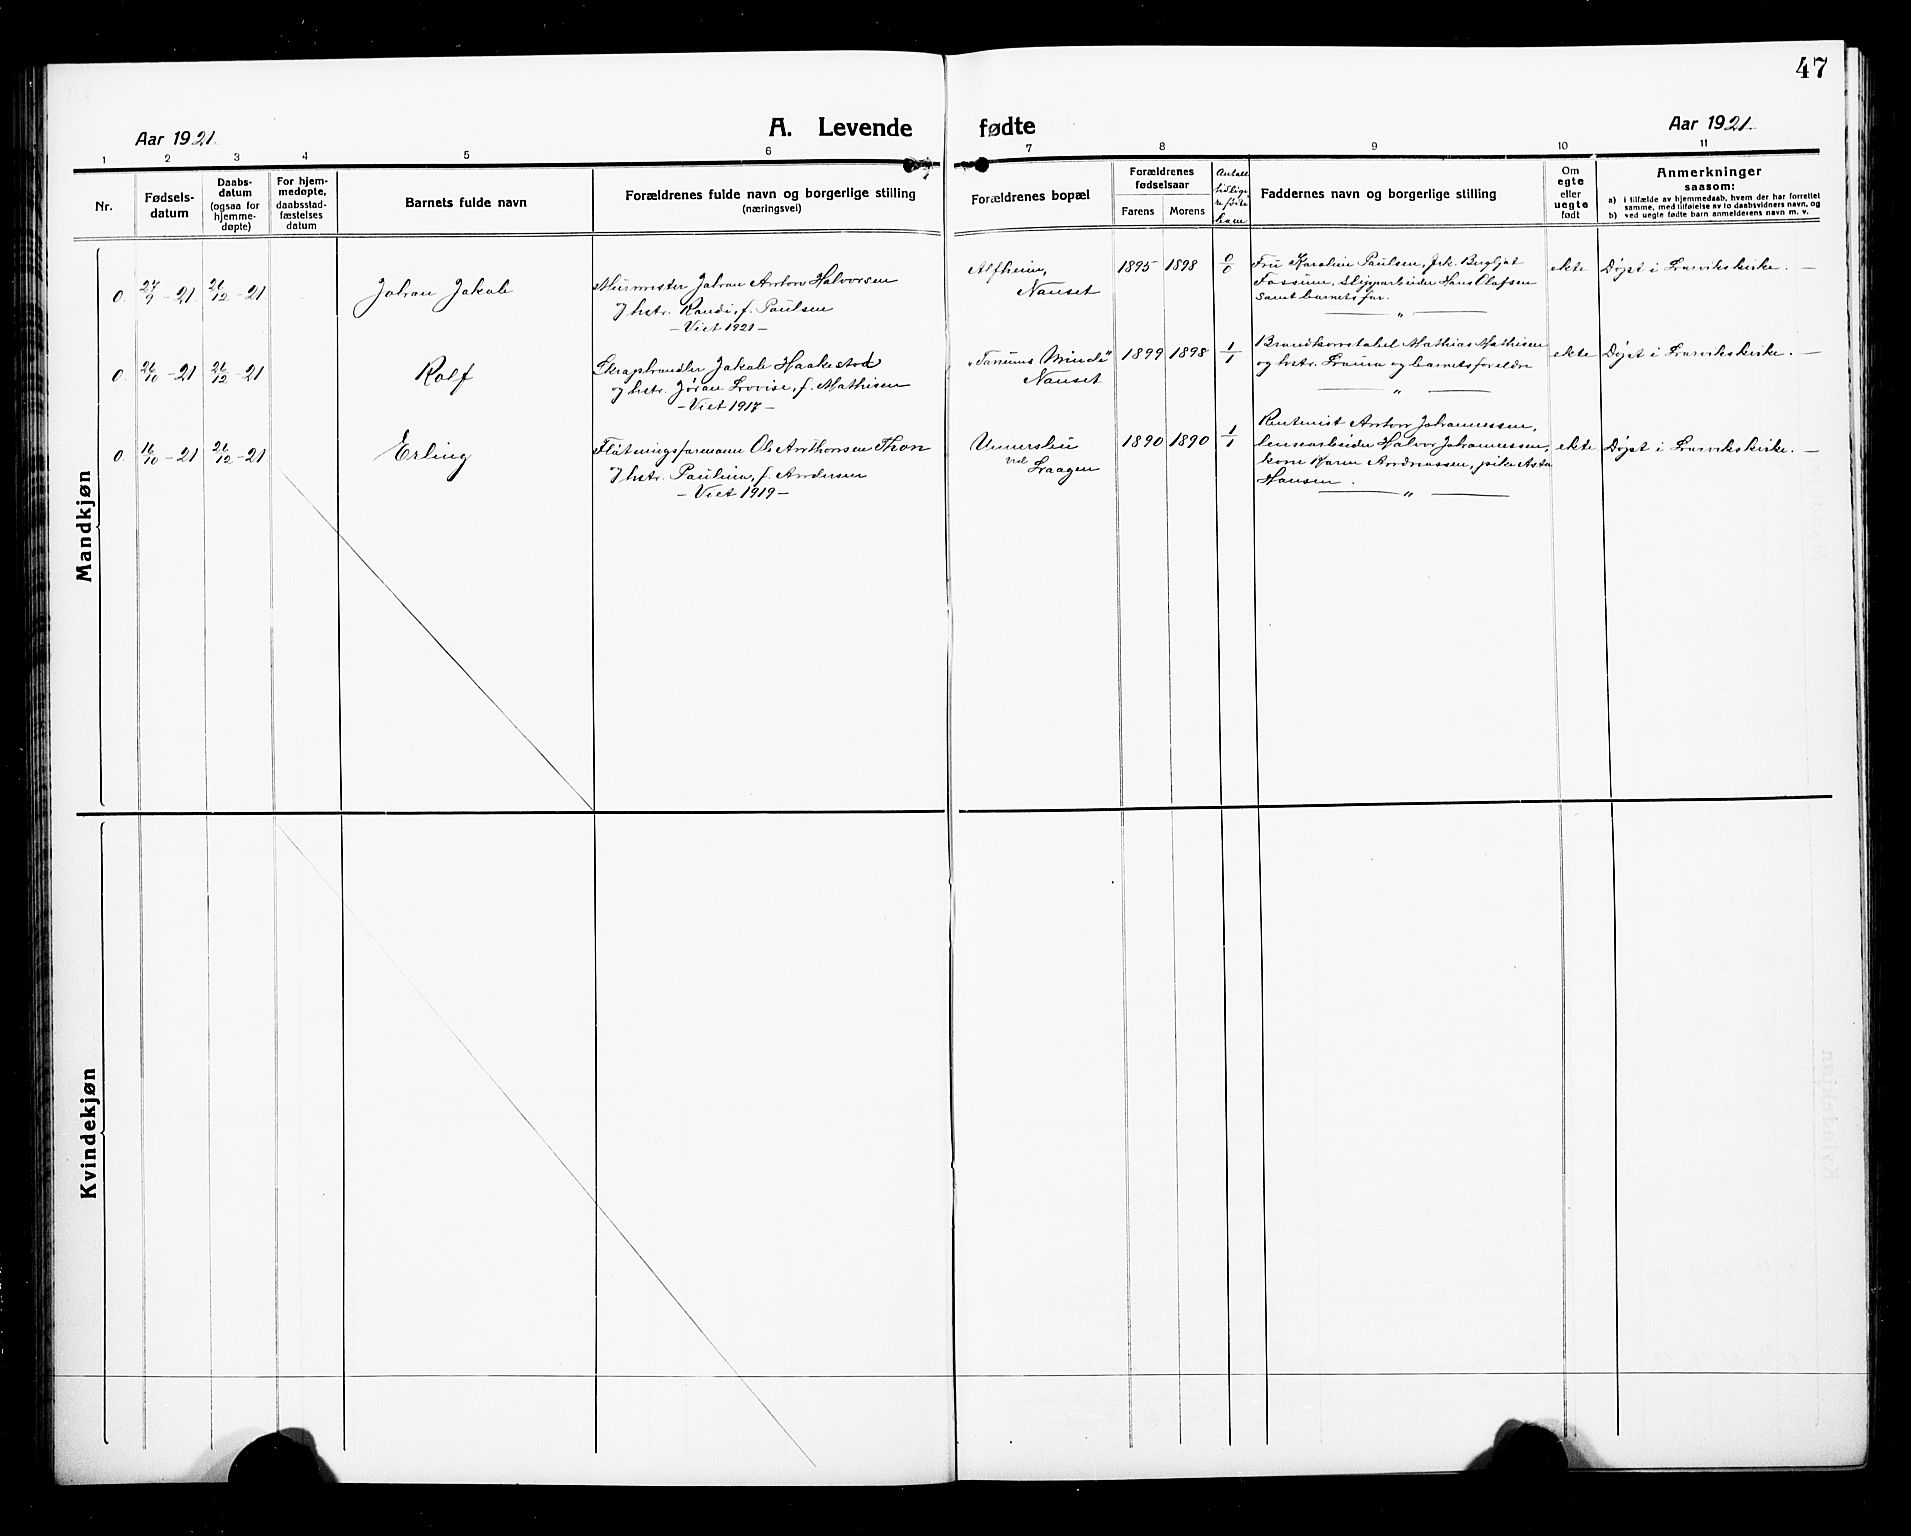 47
Aar 1921.
A. Levende
fødte
Aar 1921.
1 2 3 4 5 6 7 8 9 10 11
Nr.
Fødsels-
datum
Daabs-
datum
(ogsaa for
hjemme-
døpte)
For hjem-
medøpte,
daabsstad-
fæstelses
datum
Barnets fulde navn
Forældrenes fulde navn og borgerlige stilling
(næringsvei)
Forældrenes bopæl
Forældrenes
fødselsaar
Farens Morens
Antall
tidlige-
re fødte
barn
Faddernes navn og borgerlige stilling
Om
egte
eller
uegte
født
Anmerkninger
saasom:
a) i tilfælde av hjemmedaab, hvem der har forrettet
samme, med tilføielse av to daabsvidners navn, og
b) ved uegte fødte barn anmelderens navn m. v.
Mandkjøn
0. 27/9 - 21. 26/12 - 21
Johan Jakob
Murmester Johan Anton Halvorsen
og hstr. Randi, f. Paulsen
- Viet 1921 -
Alfheim,
Nanset
1895 1898 0/0
Fru Karoline Paulsen, frk. Bergljot
Fossum, slipparbeider Hans Olafsen
samt barnets far.
"
ekte
Døpt i Larviks kirke. -
0. 26/10 - 21 26/12 - 21
Rolf
Skraphandler Jakob Haakestad
og hstr. Jøran Lovise, f. Mathisen
- Viet 1917 -
"Tanums Minde"
Nanset
1899 1898 1/1
Brandkonstabel Mathias Mathisen
og hstr. Laura og barnets foreldre
"
ekte
Døpt i Larviks kirke. -
0. 16/10 - 21 26/12 - 21
Erling
Fløtningsformann Ole Anthonsen Thon
og hstr. Pauline, f. Andersen
- Viet 1919 -
ved
Laagen
1890 1890 1/1
Rentenist Anton Johannessen,
lensearbeider Halvor Johannessen,
kone Karen Andreassen, pike Asta
Hansen.
"
ekte
Døpt i Larviks kirke. -
Kvindekjøn